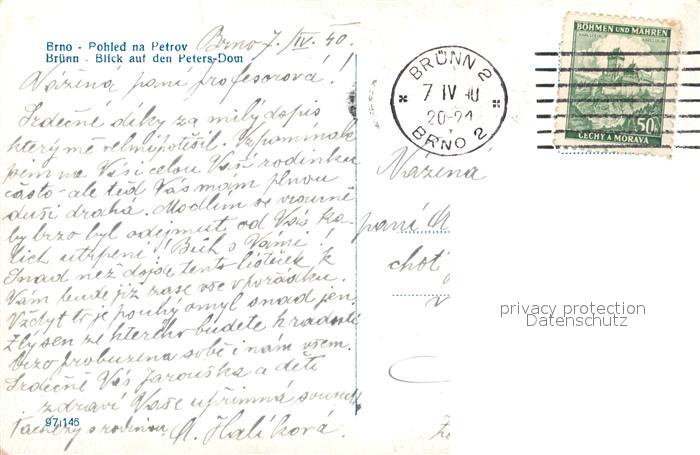 Brno - Pohled na Petrov
Brünn - Blick auf den Peters-Dom
Brno 7./IV. 40.
Vážená paní profesorová!
Srdečné díky za milý dopis
který mě velmi potěšil. Vzpomínala
jsem na Vás i celou Vaši rodinku
často - ale teď Vás mám plnou
duši drahá. Modlím se vroucně
by brzo byl odejmut od Vás ka-
lich utrpení! Bůh s Vámi!
Snad než dojde tento lísteček k
Vám bude již zase vše v pořádku.
Vždyť to je pouhý omyl snad jen
zlý sen ze kterého budete k radosti
brzo probuzena sobě i nám všem.
Srdečně Vás Jarouška a děti
zdraví Vaše upřímná
s rodinou. A. Halíková.
97/146
BRÜNN 2
7 IV 40
20-21
BRNO 2
BÖHMEN UND MÄHREN
50h
ČECHY A MORAVA
Vážená
paní
choť
v
privacy protection
Datenschutz